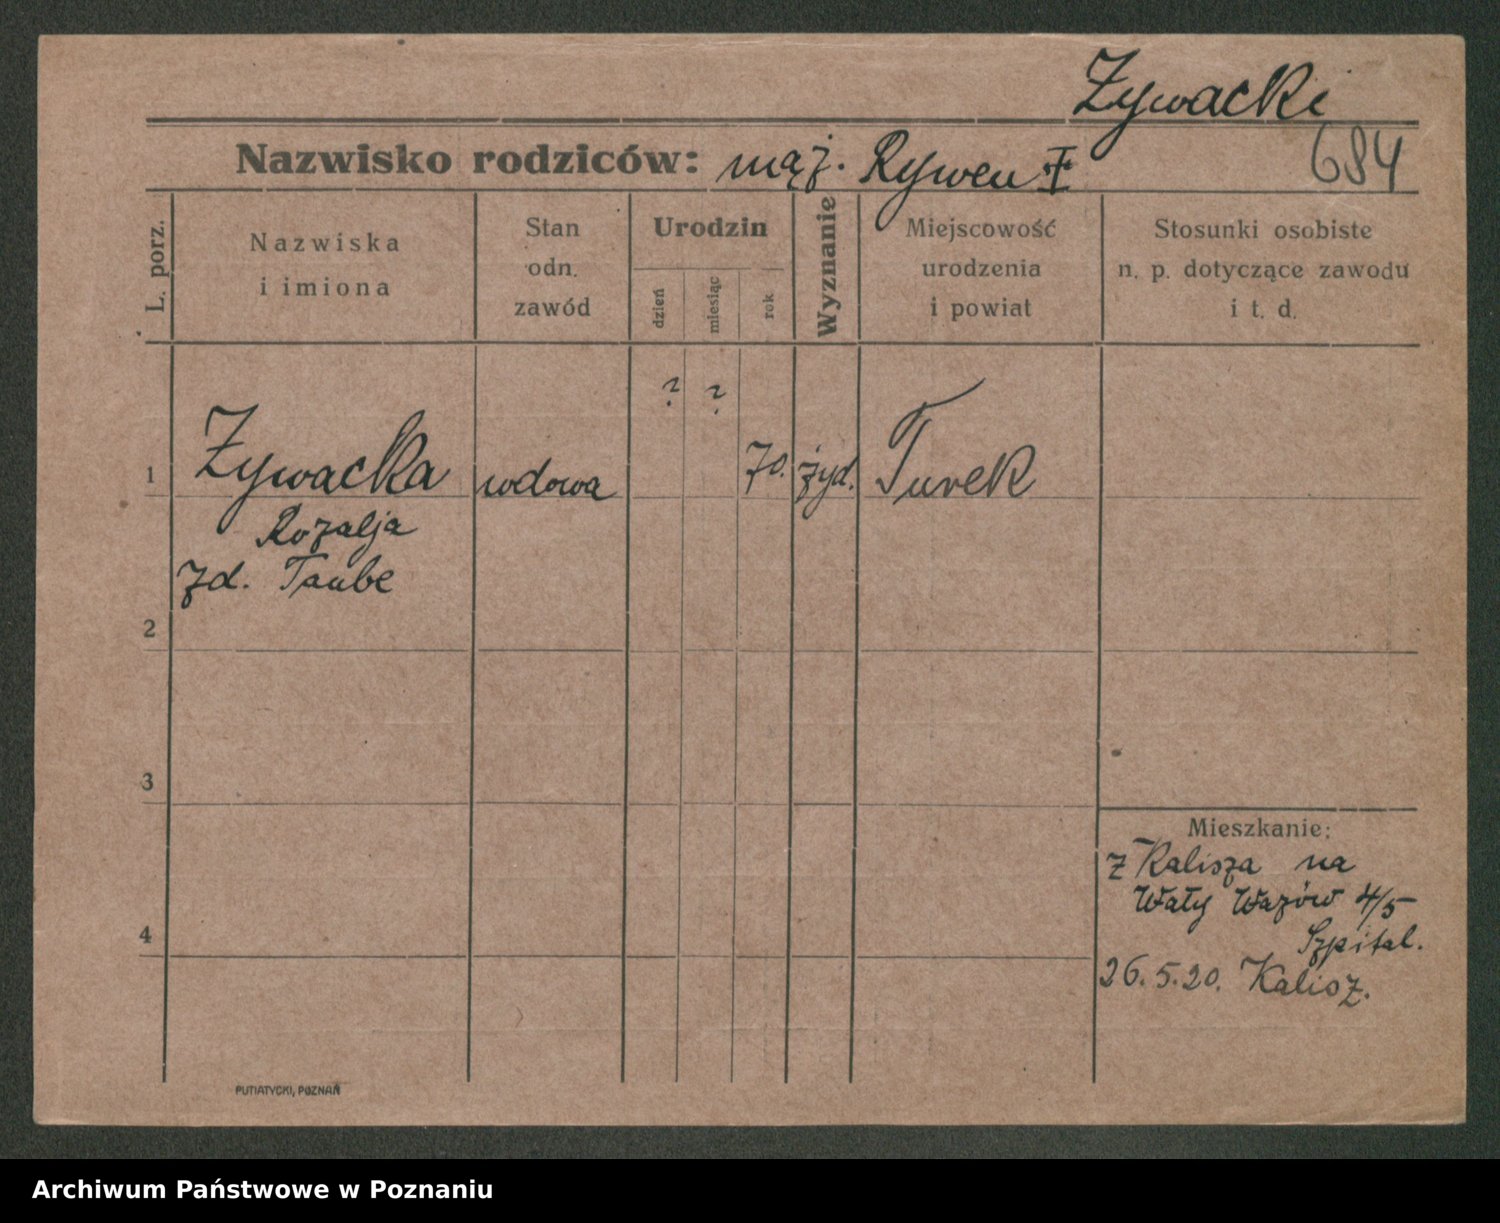 Żywacki
Nazwisko rodziców: mąż. Rywen ‡
684
L. porz.
Nazwiska
i imiona
Stan
odn.
zawód
Urodzin
dzień
miesiąc
rok
Wyznanie
Miejscowość
urodzenia
i powiat
Stosunki osobiste
n. p. dotyczące zawodu
i t. d.
? ?
1 Żywacka wdowa 70. żyd. Turek
Rozalja
zd. Taube
2
3
4
Mieszkanie:
z Kalisza na
Wały Wazów 4/5
Szpital.
26.5.20. Kalisz.
PUTIATYCKI, POZNAŃ
Archiwum Państwowe w Poznaniu